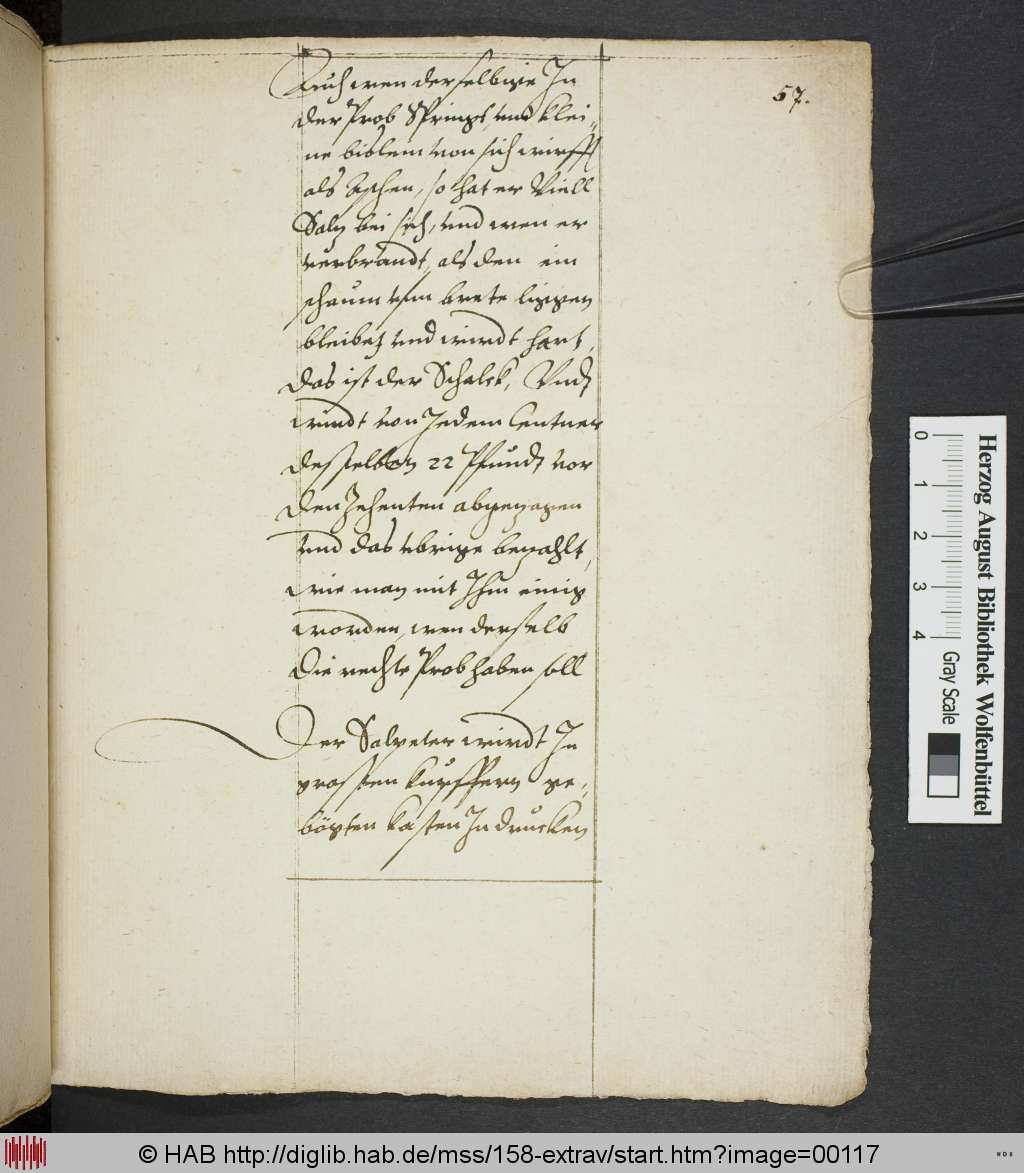 57.
Auch wen derselbige In
der Prob Springt, und klei-
ne bislein von sich wirfft
als Aschen, so hat er Viell
Saltz bei sich, und wen er
verbrandt, als den ein
schaum vfm brete liggen
bleibet und wirdt hart,
das ist der Schalck, Undt
wirdt von Jedem Centner
desselben 22 Pfundt vor
den Zehenten abgezogen
und das vbrige bezahlt,
wie man mit Ihm einig
worden, wen derselb
Die rechte Prob haben soll
Der Salpeter wirdt In
grossen kupffern ge-
kasten In drucken
Herzog August Bibliothek Wolfenbüttel
0 1 2 3 4 Gray Scale
© HAB http://diglib.hab.de/mss/158-extrav/start.htm?image=00117